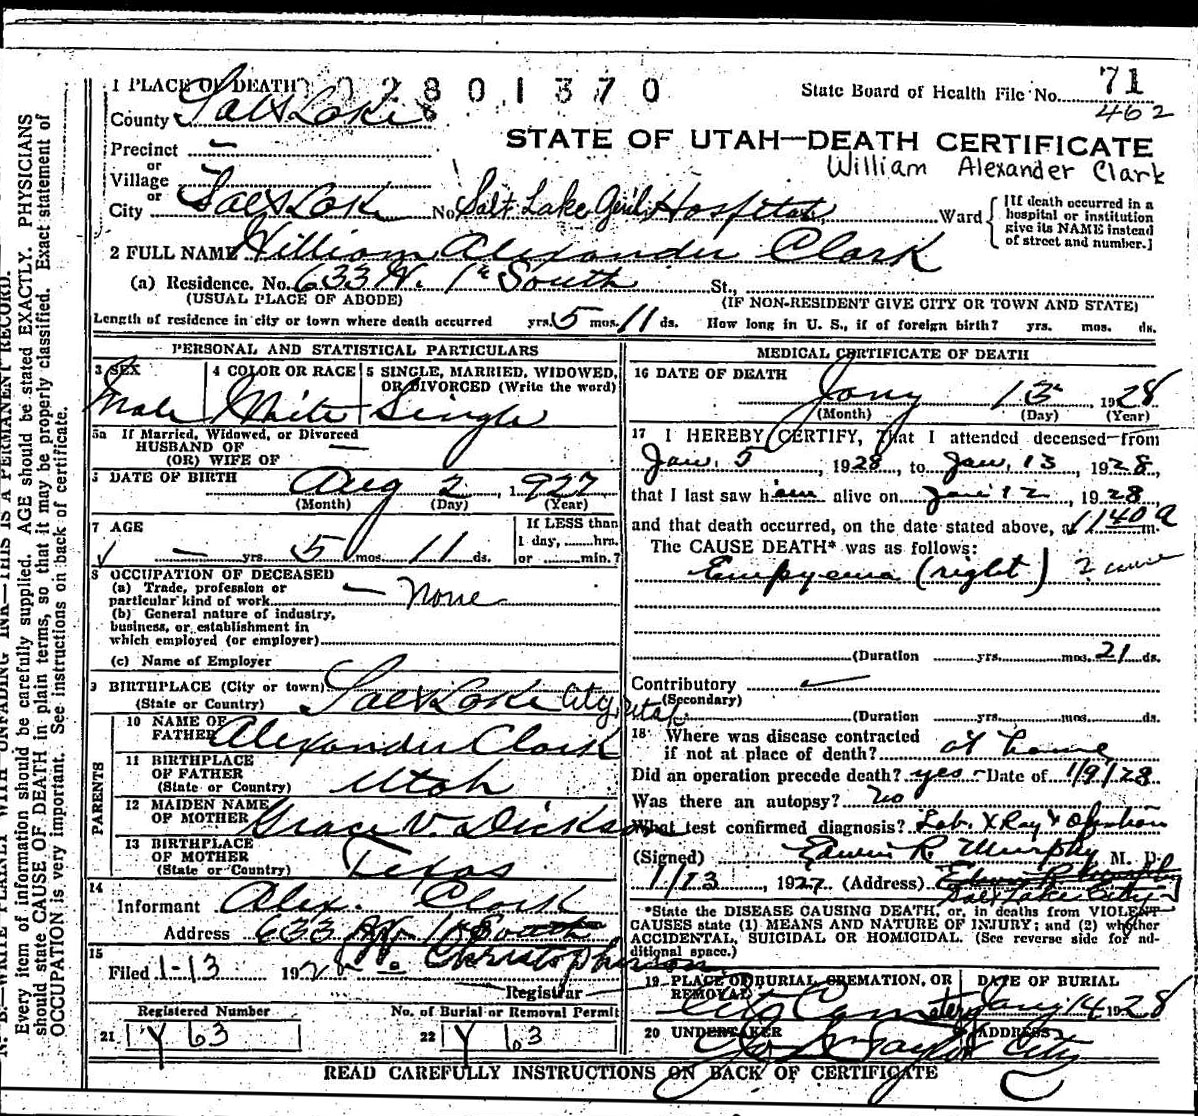 1 PLACE OF DEATH 02801370
State Board of Health File No. 71
462
County Salt Lake
STATE OF UTAH—DEATH CERTIFICATE
William Alexander Clark
Precinct —
or
Village
or
City Salt Lake No. Salt Lake Gen'l Hospital Ward
[If death occurred in a
hospital or institution
give its NAME instead
of street and number.]
2 FULL NAME William Alexander Clark
(a) Residence. No. 633 W. 1st South St.,
(USUAL PLACE OF ABODE) (IF NON-RESIDENT GIVE CITY OR TOWN AND STATE)
Length of residence in city or town where death occurred yrs. 5 mos. 11 ds. How long in U. S., if of foreign birth? yrs. mos. ds.
PERSONAL AND STATISTICAL PARTICULARS
3 SEX
Male
4 COLOR OR RACE
White
5 SINGLE, MARRIED, WIDOWED,
OR DIVORCED (Write the word)
Single
5a If Married, Widowed, or Divorced
HUSBAND OF
(OR) WIFE OF —
DATE OF BIRTH Aug 2, 1927
(Month) (Day) (Year)
7 AGE
— yrs. 5 mos. 11 ds.
If LESS than
1 day, ......hrs.
or ......min.?
8 OCCUPATION OF DECEASED
(a) Trade, profession or
particular kind of work — None
(b) General nature of industry,
business, or establishment in
which employed (or employer)
(c) Name of Employer
9 BIRTHPLACE (City or town) Salt Lake City, Utah
(State or Country)
PARENTS
10 NAME OF
FATHER Alexander Clark
11 BIRTHPLACE
OF FATHER
(State or Country) Utah
12 MAIDEN NAME
OF MOTHER Grace V. Dickson
13 BIRTHPLACE
OF MOTHER
(State or Country) Texas
14
Informant Alex. Clark
Address 633 W. 1st South
15
Filed 1-13 192 Christopherson
Registrar
Registered Number
21 Y 63
No. of Burial or Removal Permit
22 Y 63
MEDICAL CERTIFICATE OF DEATH
16 DATE OF DEATH
Jany 13 1928
(Month) (Day) (Year)
17 I HEREBY CERTIFY, That I attended deceased from
Jan. 5, 1928, to Jan. 13, 1928,
that I last saw him alive on Jan 12, 1928
and that death occurred, on the date stated above, at 1140 a m.
The CAUSE DEATH* was as follows:
Empyema (right) ? cause
(Duration ......yrs. ......mos. 21 ds.
Contributory
(Secondary)
(Duration ......yrs. ......mos. ......ds.
18 Where was disease contracted
if not at place of death? at home
Did an operation precede death? yes - Date of 1/9/28
Was there an autopsy? no
What test confirmed diagnosis? Lab. X Ray & Operation
(Signed) Edwin R. Murphy M. D.
1/13, 1927 (Address) Edwin R Murphy
Salt Lake City
*State the DISEASE CAUSING DEATH, or, in deaths from VIOLENT
CAUSES state (1) MEANS AND NATURE OF INJURY; and (2) whether
ACCIDENTAL, SUICIDAL OR HOMICIDAL. (See reverse side for ad-
ditional space.)
19 PLACE OF BURIAL, CREMATION, OR
REMOVAL
City Cemetery
DATE OF BURIAL
Jany 14 1928
20 UNDERTAKER
Taylor
ADDRESS
City
READ CAREFULLY INSTRUCTIONS ON BACK OF CERTIFICATE
N. B.—WRITE PLAINLY WITH UNFADING INK—THIS IS A PERMANENT RECORD.
Every item of information should be carefully supplied. AGE should be stated EXACTLY. PHYSICIANS
should state CAUSE OF DEATH in plain terms, so that it may be properly classified. Exact statement of
OCCUPATION is very important. See instructions on back of certificate.